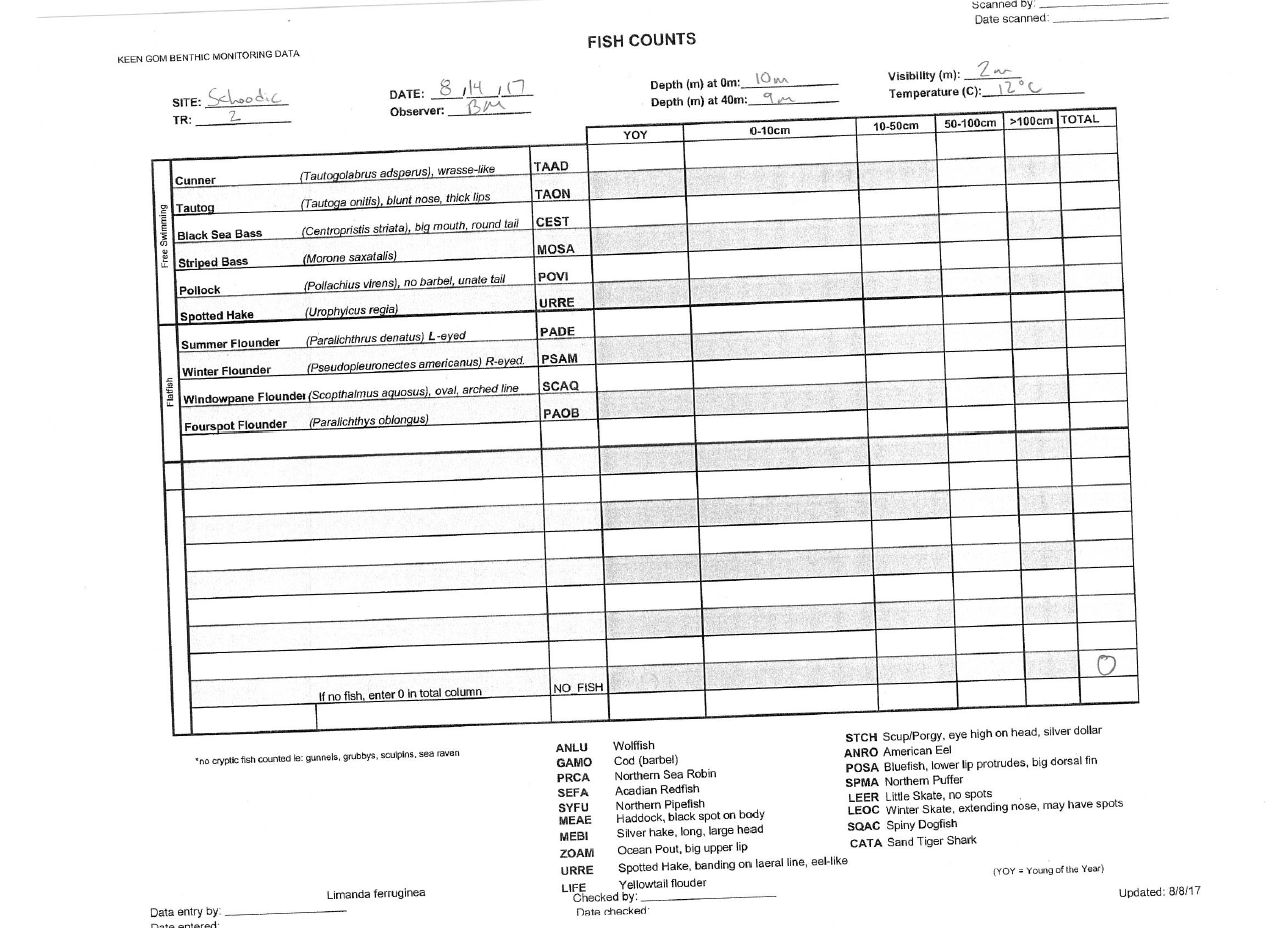 Scanned by: 
Date scanned: 
FISH COUNTS
KEEN GOM BENTHIC MONITORING DATA
SITE: Schoodic
TR: 2
DATE: 8/4/17
Observer: BM
Depth (m) at 0m: 10m
Depth (m) at 40m: 9m
Visibility (m): 2m
Temperature (C): 12°C
YOY 0-10cm 10-50cm 50-100cm >100cm TOTAL
Free Swimming
Cunner (Tautogolabrus adsperus), wrasse-like TAAD
Tautog (Tautoga onitis), blunt nose, thick lips TAON
Black Sea Bass (Centropristis striata), big mouth, round tail CEST
Striped Bass (Morone saxatalis) MOSA
Pollock (Pollachius virens), no barbel, unate tail POVI
Spotted Hake (Urophylcus regia) URRE
Flatfish
Summer Flounder (Paralichthrus denatus) L-eyed PADE
Winter Flounder (Pseudopleuronectes americanus) R-eyed. PSAM
Windowpane Flounder (Scopthalmus aquosus), oval, arched line SCAQ
Fourspot Flounder (Paralichthys oblongus) PAOB
If no fish, enter 0 in total column NO_FISH 0
*no cryptic fish counted ie: gunnels, grubbys, sculpins, sea raven
ANLU Wolffish
GAMO Cod (barbel)
PRCA Northern Sea Robin
SEFA Acadian Redfish
SYFU Northern Pipefish
MEAE Haddock, black spot on body
MEBI Silver hake, long, large head
ZOAM Ocean Pout, big upper lip
URRE Spotted Hake, banding on laeral line, eel-like
LIFE Yellowtail flouder
STCH Scup/Porgy, eye high on head, silver dollar
ANRO American Eel
POSA Bluefish, lower lip protrudes, big dorsal fin
SPMA Northern Puffer
LEER Little Skate, no spots
LEOC Winter Skate, extending nose, may have spots
SQAC Spiny Dogfish
CATA Sand Tiger Shark
(YOY = Young of the Year)
Limanda ferruginea
Data entry by:
Date entered:
Checked by:
Data checked:
Updated: 8/8/17